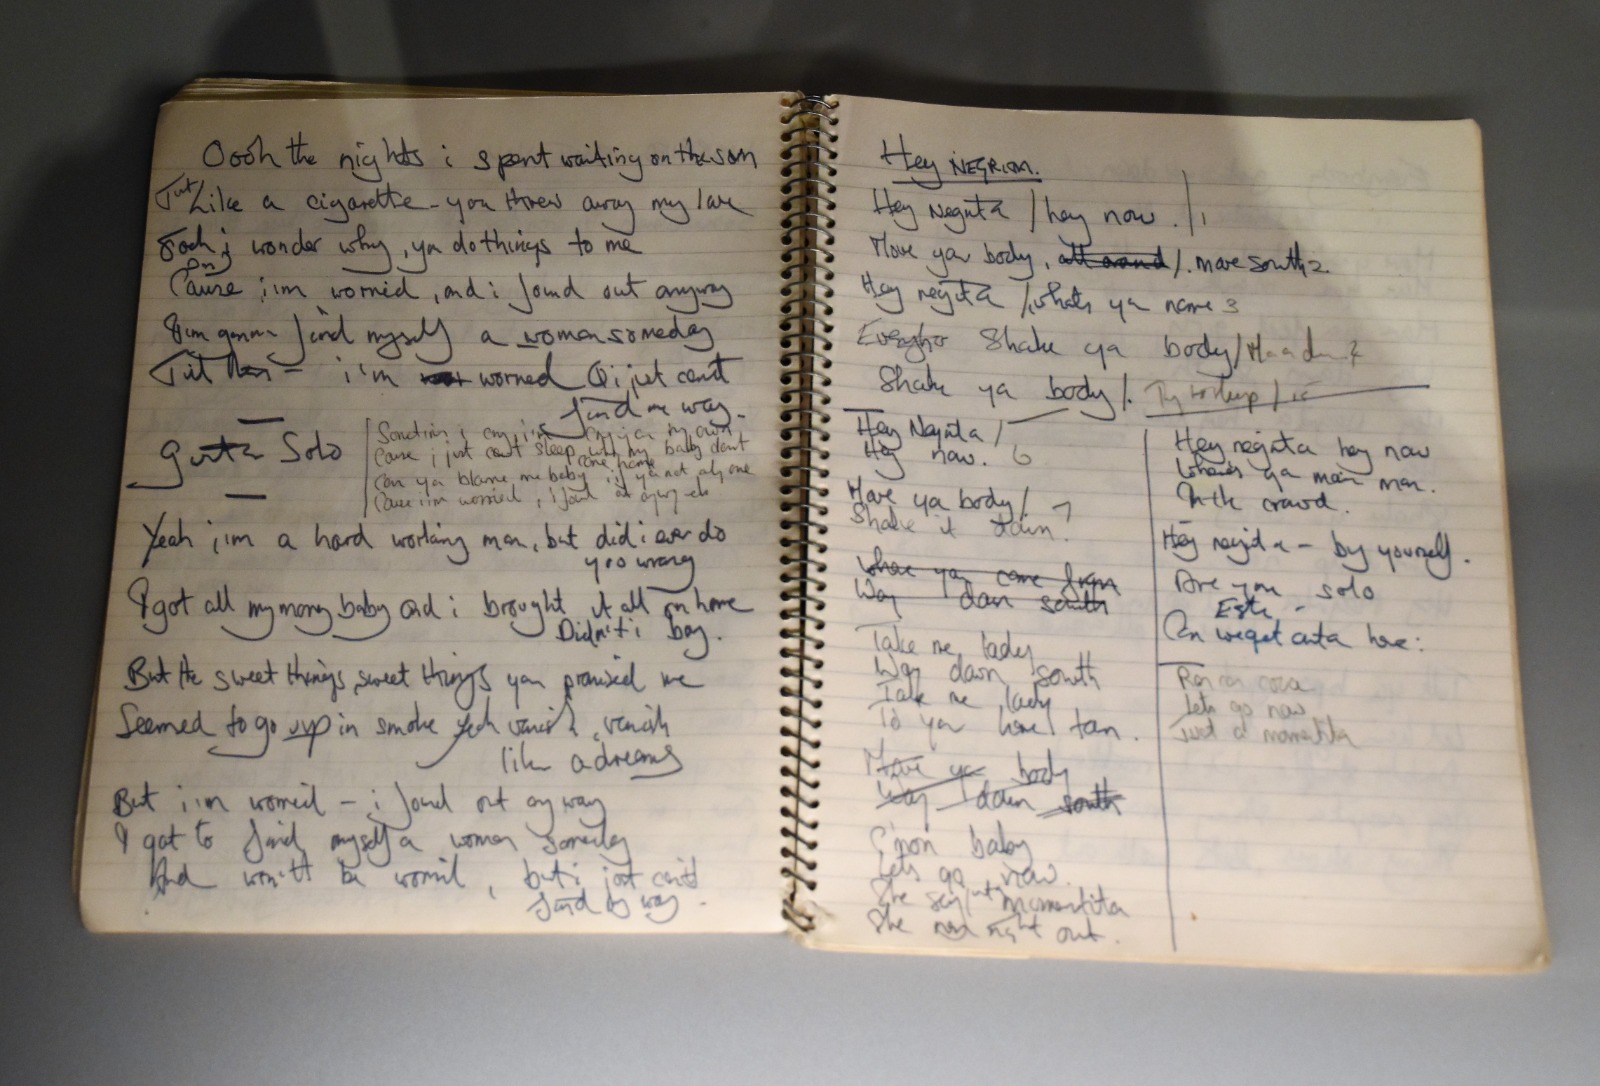 Oooh the nights i spent waiting on the
Like a cigarette - you threw away my love
Oooh i wonder why, ya do things to me
Cause i'm worried, and i found out anyway
I'm gonna find myself a woman someday
Till then - i'm worried & i just can't
find me way -
guitar Solo
Sometimes i cry, i'm
Cause i just can't sleep when my baby don't
come home
can ya blame me baby, if ya not only one
Cause i'm worried, i found out anyway
Yeah i'm a hard working man, but did i ever do
you wrong
I got all my money baby and i brought it all on home
Didn't i bay.
But the sweet things, sweet things you promised me
Seemed to go up in smoke yeah vanish, vanish
like a dream
But i'm worried - i found out anyway
I got to find myself a woman someday
And won't be worried, but i just can't
find my way.
Hey NEGRITA.
Hey Negrita / hey now. / 1
Move ya body, all around /. move south 2.
Hey negrita / whats ya name 3
Shake ya body /
Shake ya body /.
Hey Negrita /
Hey now. 6
Move ya body / 7
Shake it down.
Where ya come from
Way down south
Take me lady
Way down south
Take me lady
To you home town.
Move ya body
Way down south
C'mon baby
Lets go now.
She say just momentita
She ran right out.
Hey negrita hey now
Wheres ya main man.
In the crowd.
Hey negrita - by yourself.
Are you solo
Can we get outa here:
Lets go now
Just a momentita